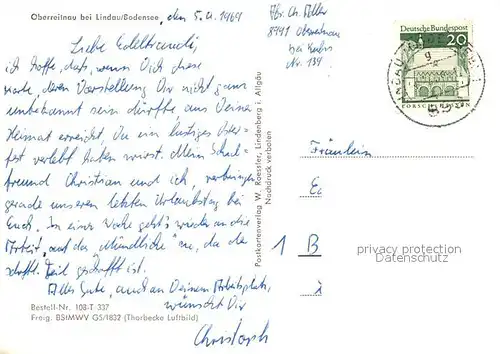 Oberreitnau bei Lindau/Bodensee, den 5.4.1969
Liebe Edeltraud,
ich hoffe, daß, wenn Dich diese
Karte, deren Darstellung Dir nicht ganz
unbekannt sein dürfte aus Deiner
Heimat erreicht, Du ein lustiges Oster-
fest verlebt haben wirst. Mein Schul-
freund Christian und ich, verbringen
gerade unseren letzten Urlaubstag bei
Euch. In einer Woche geht's wieder an die
Arbeit, "auf das Mündliche" zu, da der
schriftl. Teil geschafft ist.
Alles Gute, auch an Deinem Arbeitsplatz,
wünscht Dir
Christoph
Bestell-Nr. 108-T 337
Freig. BStMWV G5/1832 (Thorbecke Luftbild)
Postkartenverlag W. Roessler, Lindenberg i. Allgäu
Nachdruck verboten
Abs. Ch.
8991 Oberreitnau
bei Lindau
Nr. 134
Deutsche Bundespost
20
LORSCH/HESSEN
Fräulein
1 B
privacy protection
Datenschutz